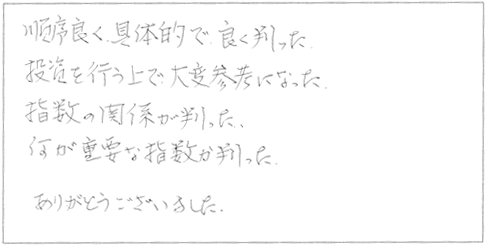 順序良く、具体的で、良く判った。
投資を行う上で大変参考になった。
指数の関係が判った、
何が重要な指数か判った。
ありがとうございました。